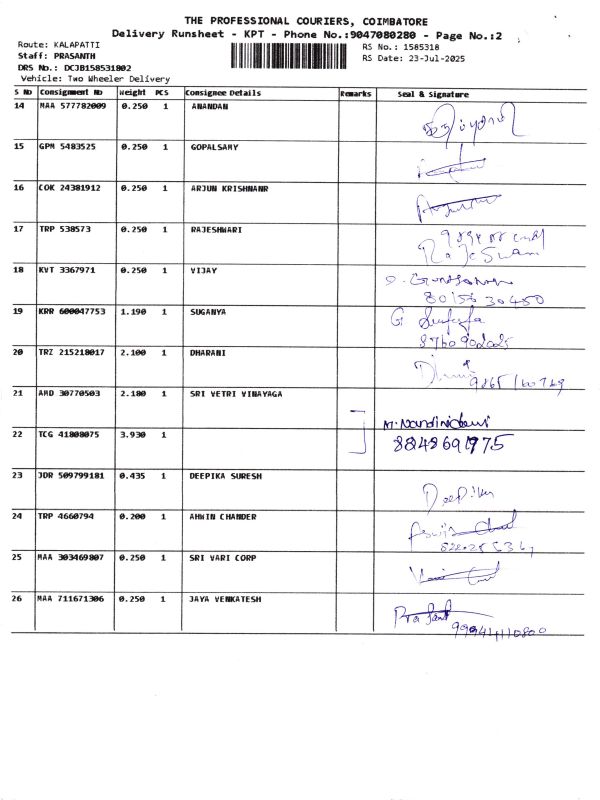 THE PROFESSIONAL COURIERS, COIMBATORE
Delivery Runsheet - KPT - Phone No.:9047080280 - Page No.:2
Route: KALAPATTI
RS No.: 1585318
Staff: PRASANTH
RS Date: 23-Jul-2025
DRS No.: DCJB158531802
Vehicle: Two Wheeler Delivery
S NO Consignment No Weight PCS Consignee Details Remarks Seal & Signature
14 MAA 577782009 0.250 1 ANANDAN
15 GPM 5483525 0.250 1 GOPALSAMY
16 COK 24381912 0.250 1 ARJUN KRISHNANR
17 TRP 538573 0.250 1 RAJESHWARI
18 KVT 3367971 0.250 1 VIJAY
8015630450
19 KRR 600047753 1.190 1 SUGANYA
G
8760902025
20 TRZ 215218017 2.100 1 DHARANI
21 AMD 30770503 2.180 1 SRI VETRI VINAYAGA
M. Nandinidevi
22 TCG 41808075 3.930 1
8848691975
23 JDR 509799181 0.435 1 DEEPIKA SURESH
Deepika
24 TRP 4660794 0.200 1 AHWIN CHANDER
25 MAA 303469807 0.250 1 SRI VARI CORP
26 MAA 711671306 0.250 1 JAYA VENKATESH